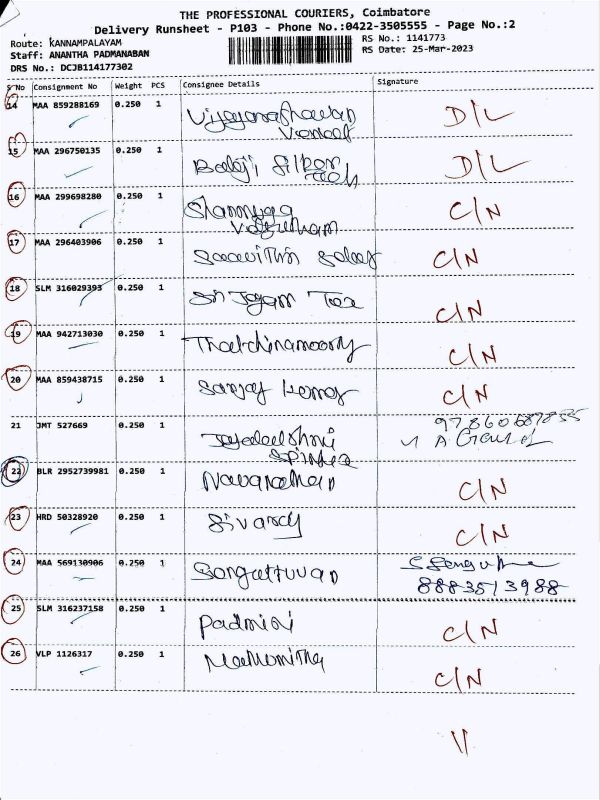 THE PROFESSIONAL COURIERS, Coimbatore
Delivery Runsheet - P103 - Phone No.:0422-3505555 - Page No.:2
Route: KANNAMPALAYAM
RS No.: 1141773
Staff: ANANTHA PADMANABAN
RS Date: 25-Mar-2023
DRS No.: DCJB114177302
S No Consignment No Weight PCS Consignee Details Signature
14 MAA 859288169 0.250 1 Vijayaraghavan D/L
Venkat
15 MAA 296750135 0.250 1 Balaji D/L
Tech
16 MAA 299698280 0.250 1 C/N
17 MAA 296403906 0.250 1 C/N
18 SLM 316029393 0.250 1 Sri Jayam Tex C/N
19 MAA 942713030 0.250 1 Thatchinamoorthy C/N
20 MAA 859438715 0.250 1 Sanjay Kumar C/N
21 JMT 527669 0.250 1
22 BLR 2952739981 0.250 1 Navarathan C/N
23 HRD 50328920 0.250 1 Sivaraj C/N
24 MAA 569130906 0.250 1 Senguttuvan
8883513988
25 SLM 316237158 0.250 1 Padmini C/N
26 VLP 1126317 0.250 1 Mathumitha C/N